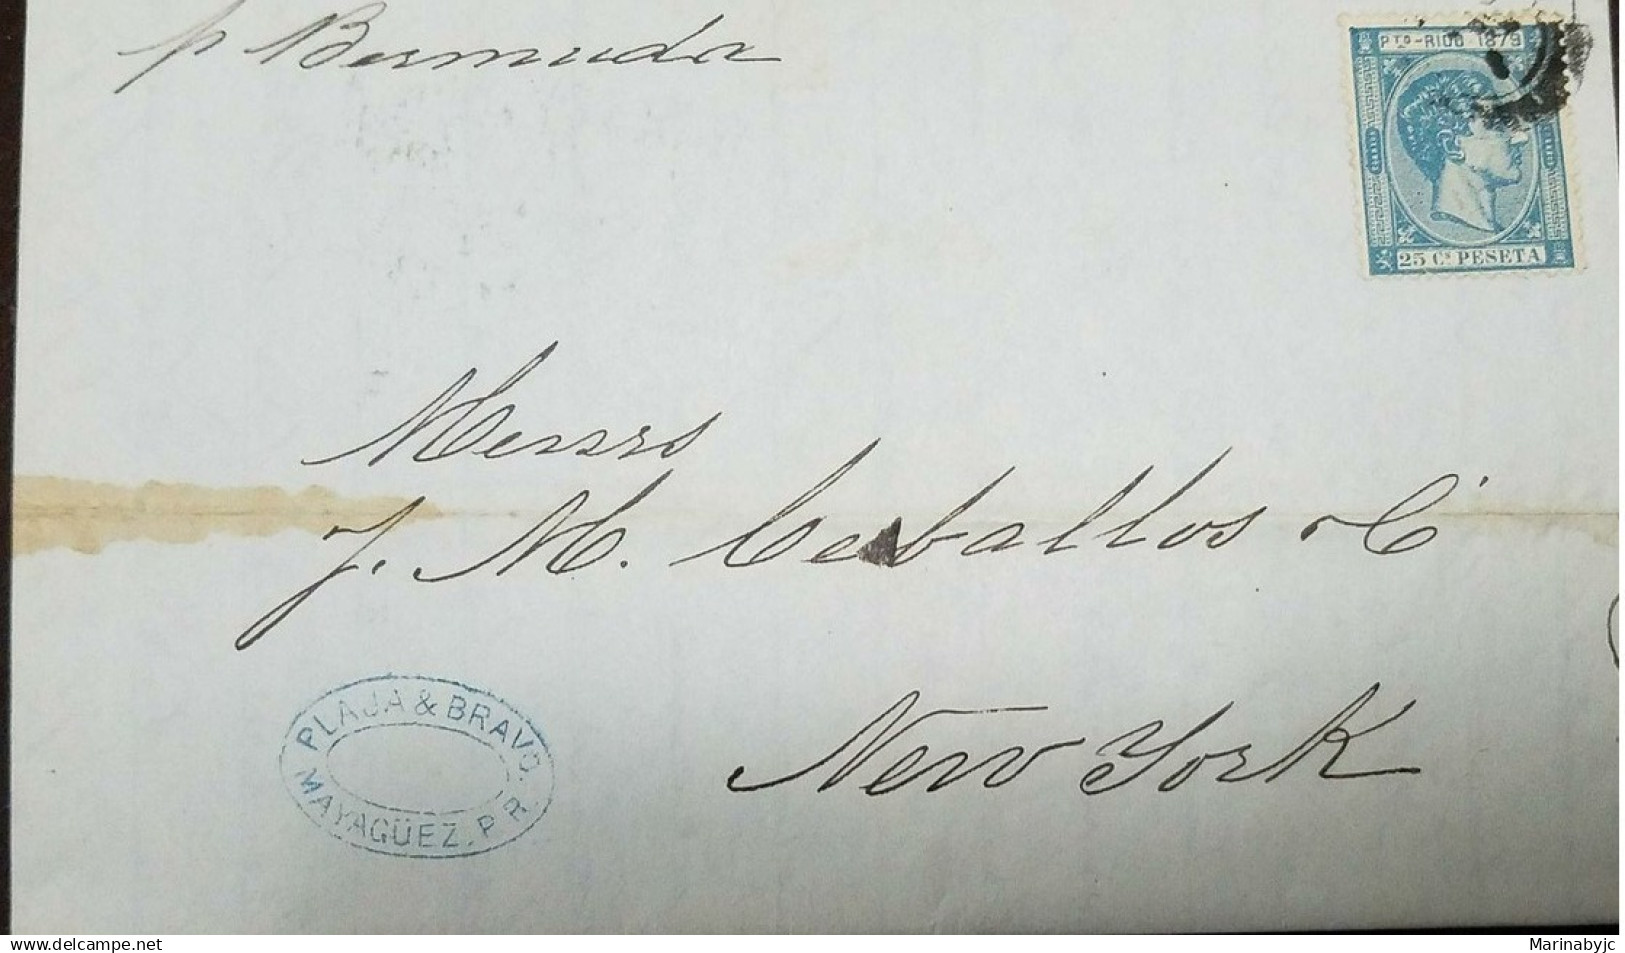 p Bermuda
Pto-RICO 1879
25 Cs PESETA
Messrs
J. M. Ceballos & C
New York
PLAJA & BRAVO.
MAYAGÜEZ. P. R.
www.delcampe.net
Marinabyjc